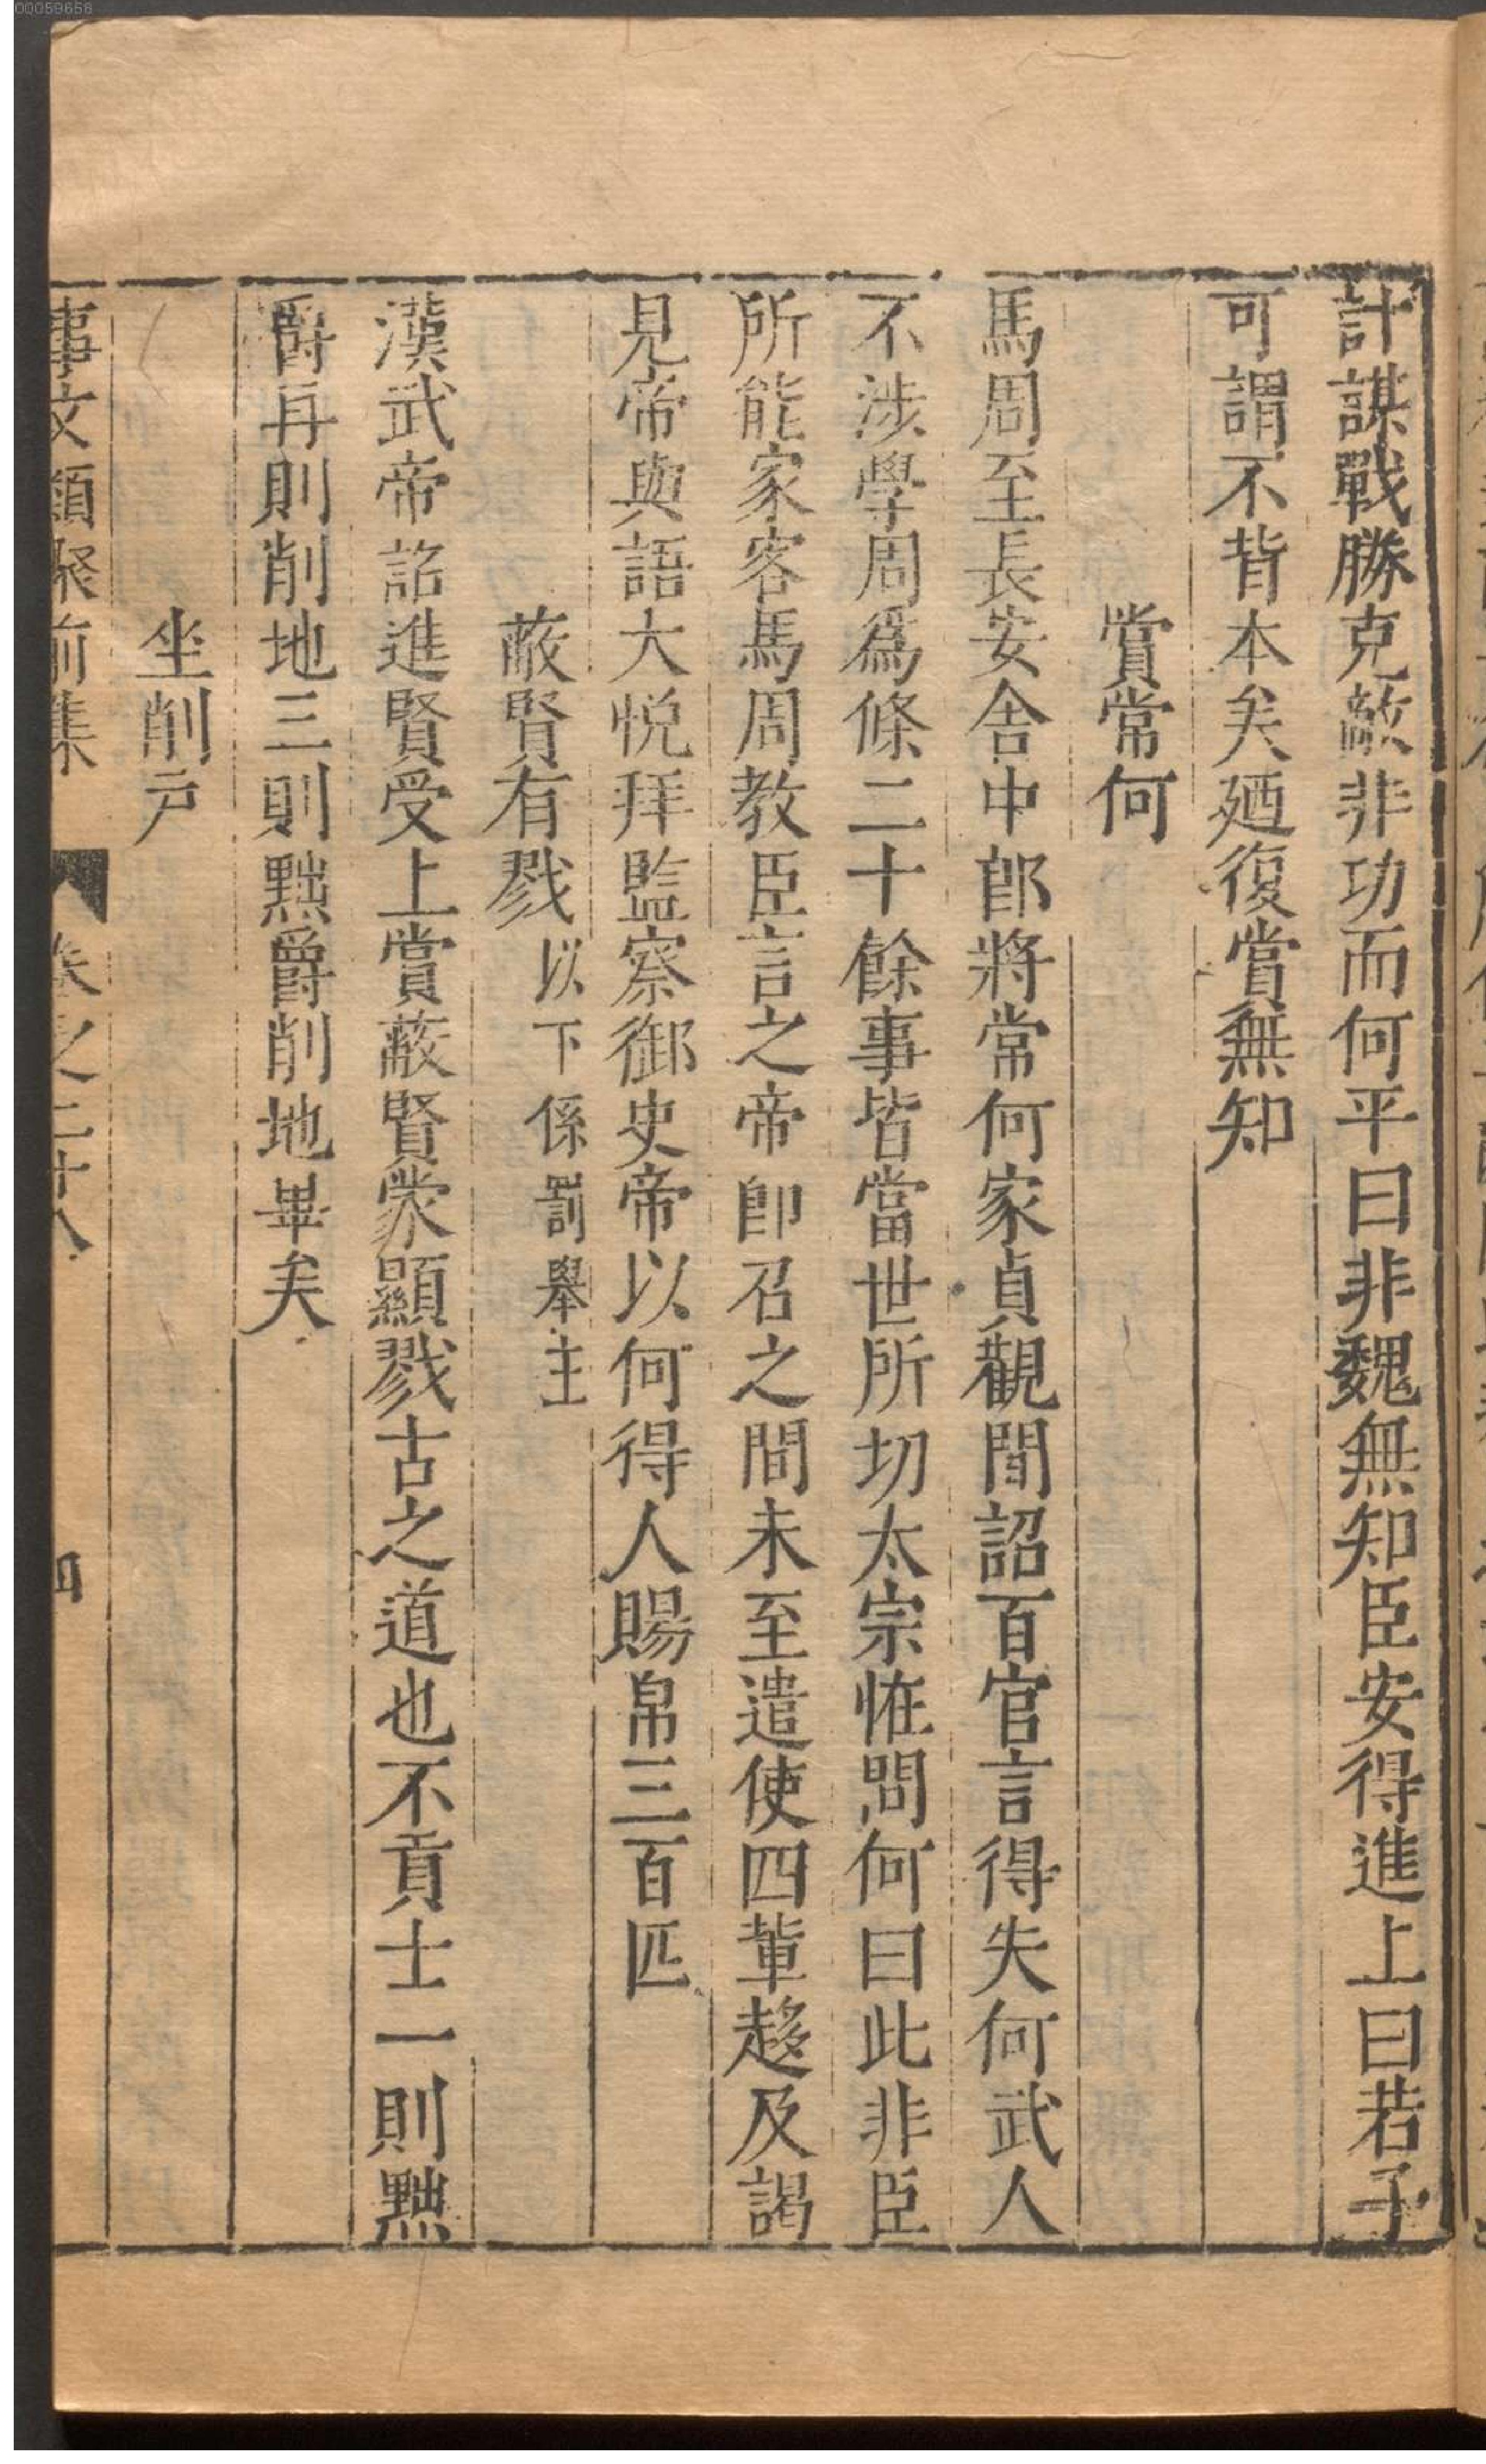 計謀戰勝克敵非功而何平曰非魏無知臣安得進上曰若子
可謂不背本矣廼復賞無知
賞常何
馬周至長安舍中郎將常何家貞觀間詔百官言得失何武人
不涉學周爲條二十餘事皆當世所切太宗恠問何曰此非臣
所能家客馬周教臣言之帝卽召之間未至遣使四軰趍及謁
見帝與語大悅拜監察御史帝以何得人賜帛三百匹
蔽賢有戮以下係罰舉主
漢武帝詔進賢受上賞蔽賢蒙顯戮古之道也不貢士一則黜
爵再則削地三則黜爵削地畢矣
坐削戸
事文類聚前集 卷之二十八 四
00059658